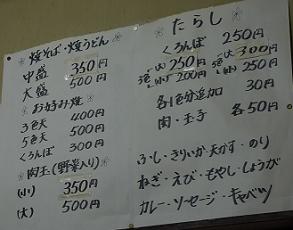 焼そば・焼うどん
中盛 350円
大盛 500円
お好み焼
3色天 400円
5色天 500円
くろんぼ 300円
肉玉(野菜入り)
(小) 350円
(大) 500円
たらし
くろんぼ 250円
3色 (大) 250円 (小) 200円
5色 (大) 300円 (小) 250円
各1色分追加 30円
肉・玉子 各50円
ふし・きりいか・天かす・のり
ねぎ・えび・もやし・しょうが
カレー・ソーセージ・キャベツ